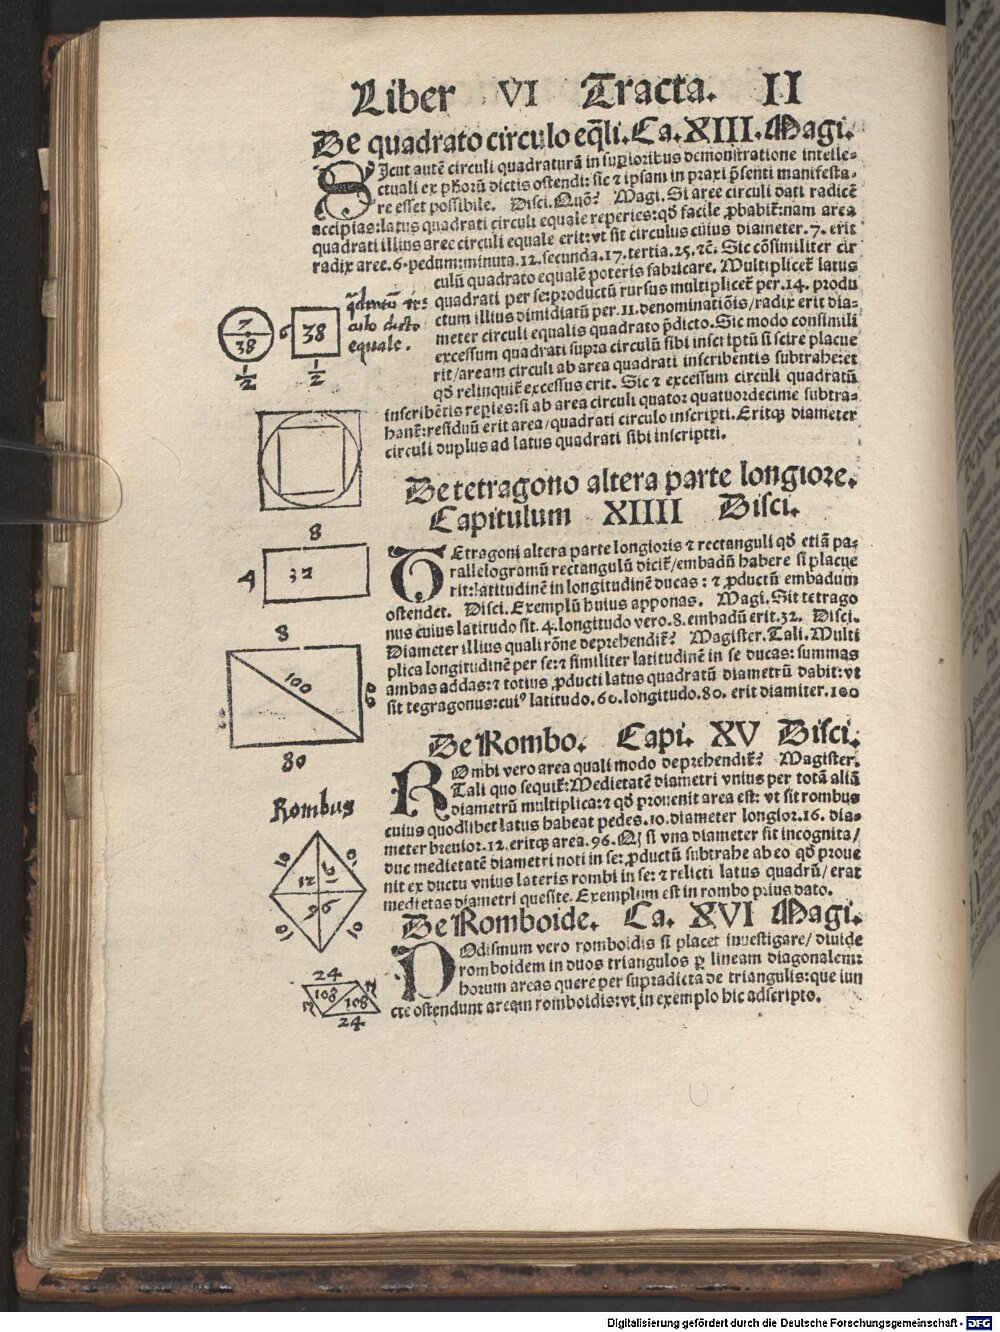 Liber VI Tracta. II
De quadrato circulo eq̄li. Ca. XIII. Magi.
SIcut autē circuli quadraturā in suꝑioribus demonstratione intelle-
ctuali ex ph̄orū dictis ostendi: sic ⁊ ipsam in praxi p̄senti manifesta-
re esset possibile. Disci. Quō? Magi. Si aree circuli dati radicē
accipias: latus quadrati circuli equale reperies: qd̄ facile ꝓbabit̄: nam area
quadrati illius aree circuli equale erit: vt sit circulus cuius diameter. 7. erit
radix aree. 6. pedum: minuta. 12. secunda. 17. tertia. 25. ⁊c̄. Sic cōsimiliter cir
culū quadrato equalē poteris fabricare. Multiplicet̄ latus
quadrati per se: productū rursus multiplicet̄ per. 14. produ
ctum illius dimidiatū per. 11. denominatiōis/ radix erit dia-
meter circuli equalis quadrato p̄dicto. Sic modo consimili
excessum quadrati supra circulū sibi inscriptū si scire placue
rit/ aream circuli ab area quadrati inscribentis subtrahe: et
qd̄ relinquit̄ excessus erit. Sic ⁊ excessum circuli quadratū
inscribētis repies: si ab area circuli quator quatuordecime subtra-
hant̄: residuū erit area/ quadrati circulo inscripti. Eritqꝫ diameter
circuli duplus ad latus quadrati sibi inscriptti.
q̄dratū cir:
culo dicto
equale.
7
38
1
2
6
38
1
2
De tetragono altera parte longiore.
Capitulum XIIII Disci.
TEtragoni altera parte longioris ⁊ rectanguli qd̄ etiā pa-
rallelogramū rectangulū dicit̄/ embadū habere si placue
rit: latitudinē in longitudinē ducas: ⁊ ꝓductū embadum
ostendet. Disci. Exemplū huius apponas. Magi. Sit tetrago
nus cuius latitudo sit. 4. longitudo vero. 8. embadū erit. 32. Disci.
Diameter illius quali rōne deprehendit̄? Magister. Tali. Multi
plica longitudinē per se: ⁊ similiter latitudinē in se ducas: summas
ambas addas: ⁊ totius ꝓducti latus quadratū diametrū dabit: vt
sit tegragonus: cuiꝰ latitudo. 60. longitudo. 80. erit diamiter. 100
8
4
32
8
100
60
80
De Rombo. Capi. XV Disci.
ROmbi vero area quali modo deprehendit̄? Magister.
Tali quo sequit̄: Medietatē diametri vnius per totā aliā
diametrū multiplica: ⁊ qd̄ prouenit area est: vt sit rombus
cuius quodlibet latus habeat pedes. 10. diameter longior. 16. dia-
meter breuior. 12. eritqꝫ area. 96. Qꝫ si vna diameter sit incognita/
duc medietatē diametri noti in se: ꝓductū subtrahe ab eo qd̄ proue
nit ex ductu vnius lateris rombi in se: ⁊ relicti latus quadrū/ erat
medietas diametri quesite. Exemplum est in rombo prius dato.
Rombus
10
10
12
96
10
10
De Romboide. Ca. XVI Magi.
POdismum vero romboidis si placet inuestigare/ diuide
romboidem in duos triangulos ꝑ lineam diagonalem:
horum areas quere per supradicta de triangulis: que iun
cte ostendunt aream romboidis: vt in exemplo hic adscripto.
24
108
108
24
Digitalisierung gefördert durch die Deutsche Forschungsgemeinschaft - DFG